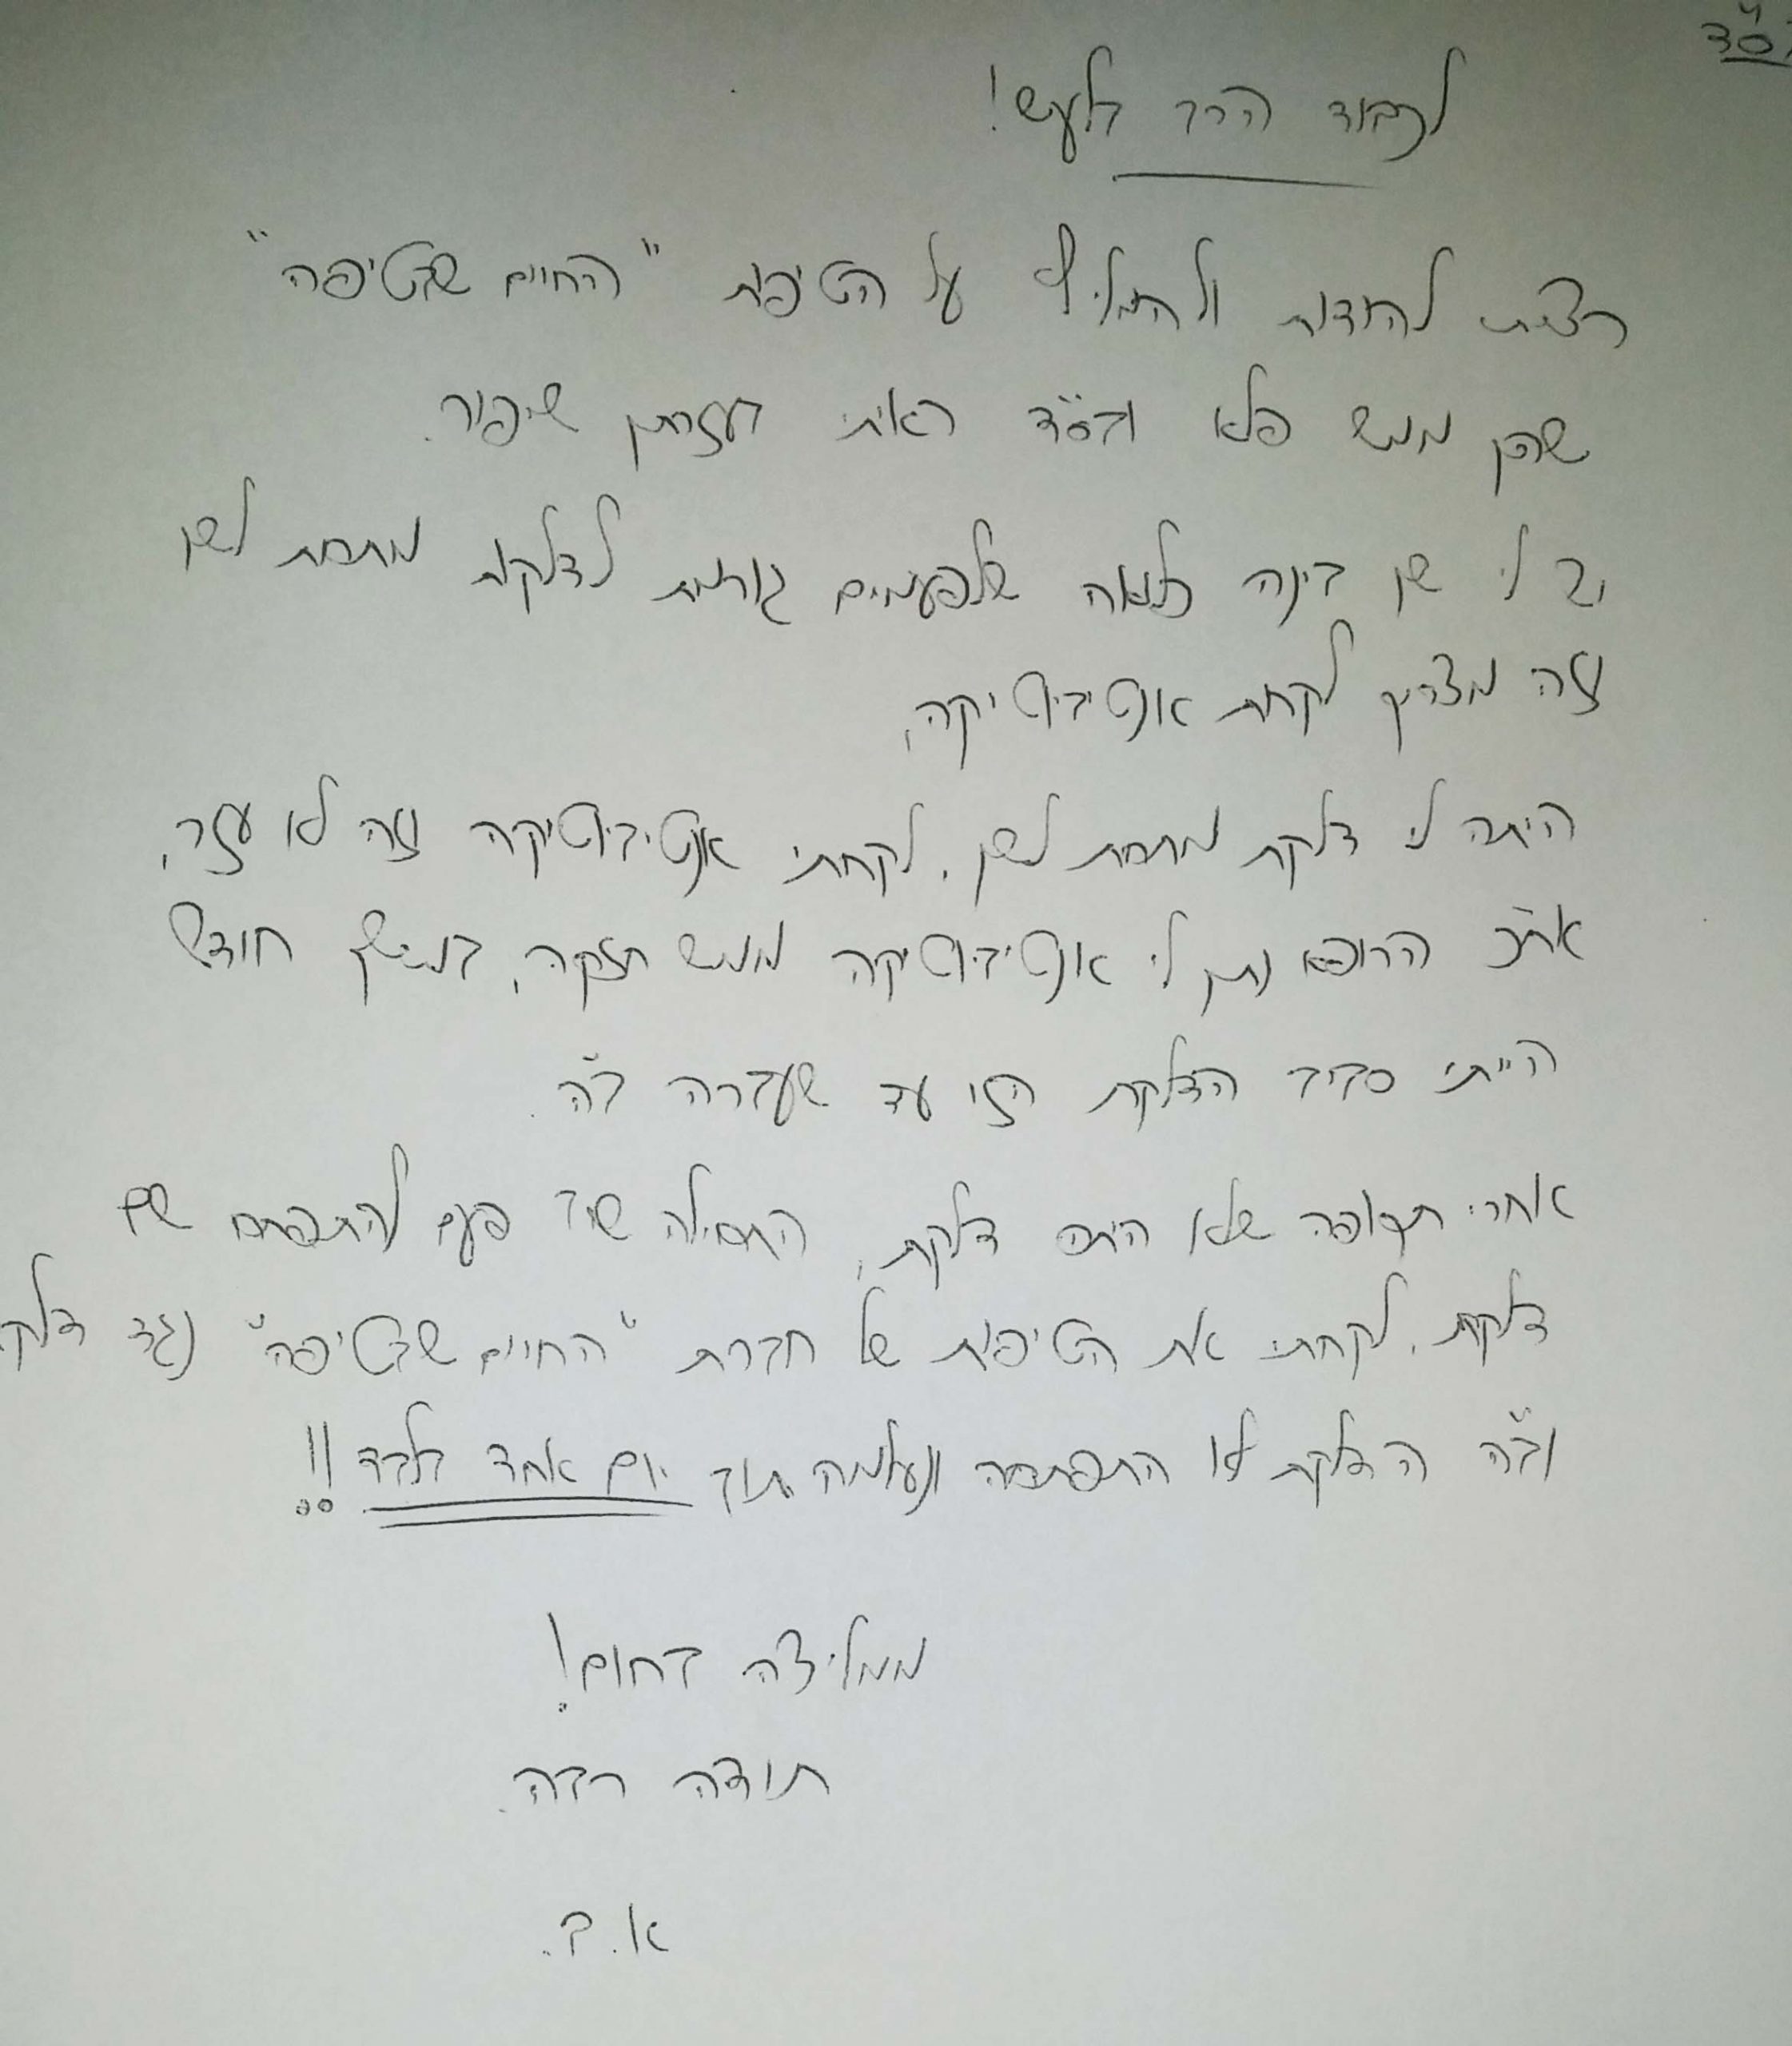 בס"ד
לכבוד הרב בלעש!
רציתי להודות ולהמליץ על הטיפות "החיים שבטיפה"
שהן ממש פלא ובס"ד ראיתי בעזרתן שיפור.
יש לי שן בינה כלואה שלפעמים גורמת לדלקת מתחת לשן
וזה מצריך לקחת אנטיביוטיקה,
היתה לי דלקת מתחת לשן, לקחתי אנטיביוטיקה וזה לא עזר,
אח"כ הרופא נתן לי אנטיביוטיקה ממש חזקה, במשך חודש
הייתי סביב הדלקת הזו עד שעברה ב"ה.
אחרי תקופה שלא היתה דלקת, התחילה שוב פעם להתפתח שם
דלקת, לקחתי את הטיפות של חברת "החיים שבטיפה" נגד דלקת
וב"ה הדלקת לא התפתחה ונעלמה תוך יום אחד בלבד!!
ממליצה בחום!
תודה רבה.
א.ב.